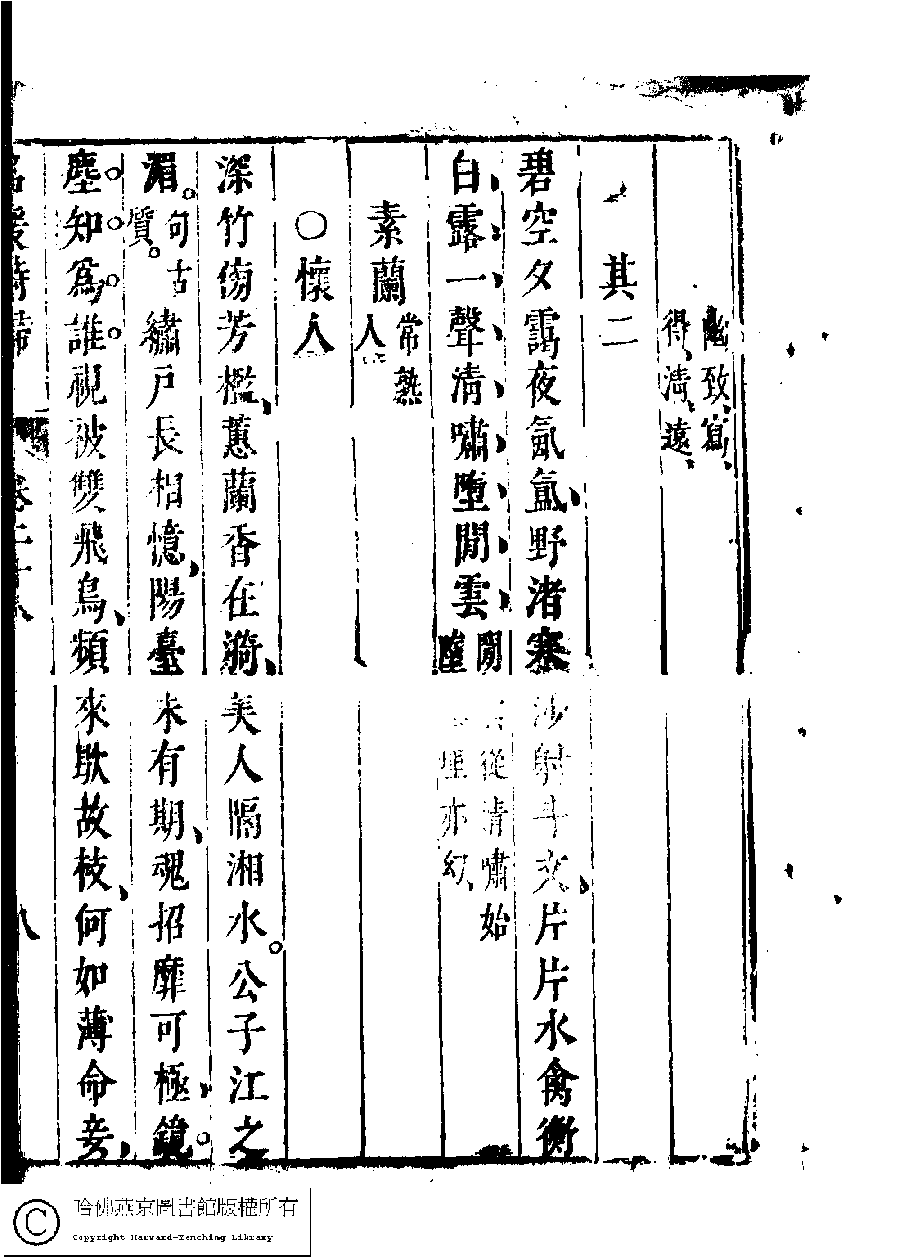 幽致寫
得清遠
其二
碧空夕靄夜氤氳野渚寒沙射斗文片片水禽衡
白露一聲清嘯墮閒雲閒
從清嘯始
墮
埋亦幻
素蘭常熟
人
○懷人
深竹傍芳檻蕙蘭香在漪美人隔湘水公子江之
湄句古
質繡戶長相憶陽臺未有期魂招靡可極鏡
塵知為誰視彼雙飛鳥頻來耽故枝何如薄命妾
名媛詩歸
卷二十八
八
哈佛燕京圖書館版權所有
Copyright Harvard-Yenching Library